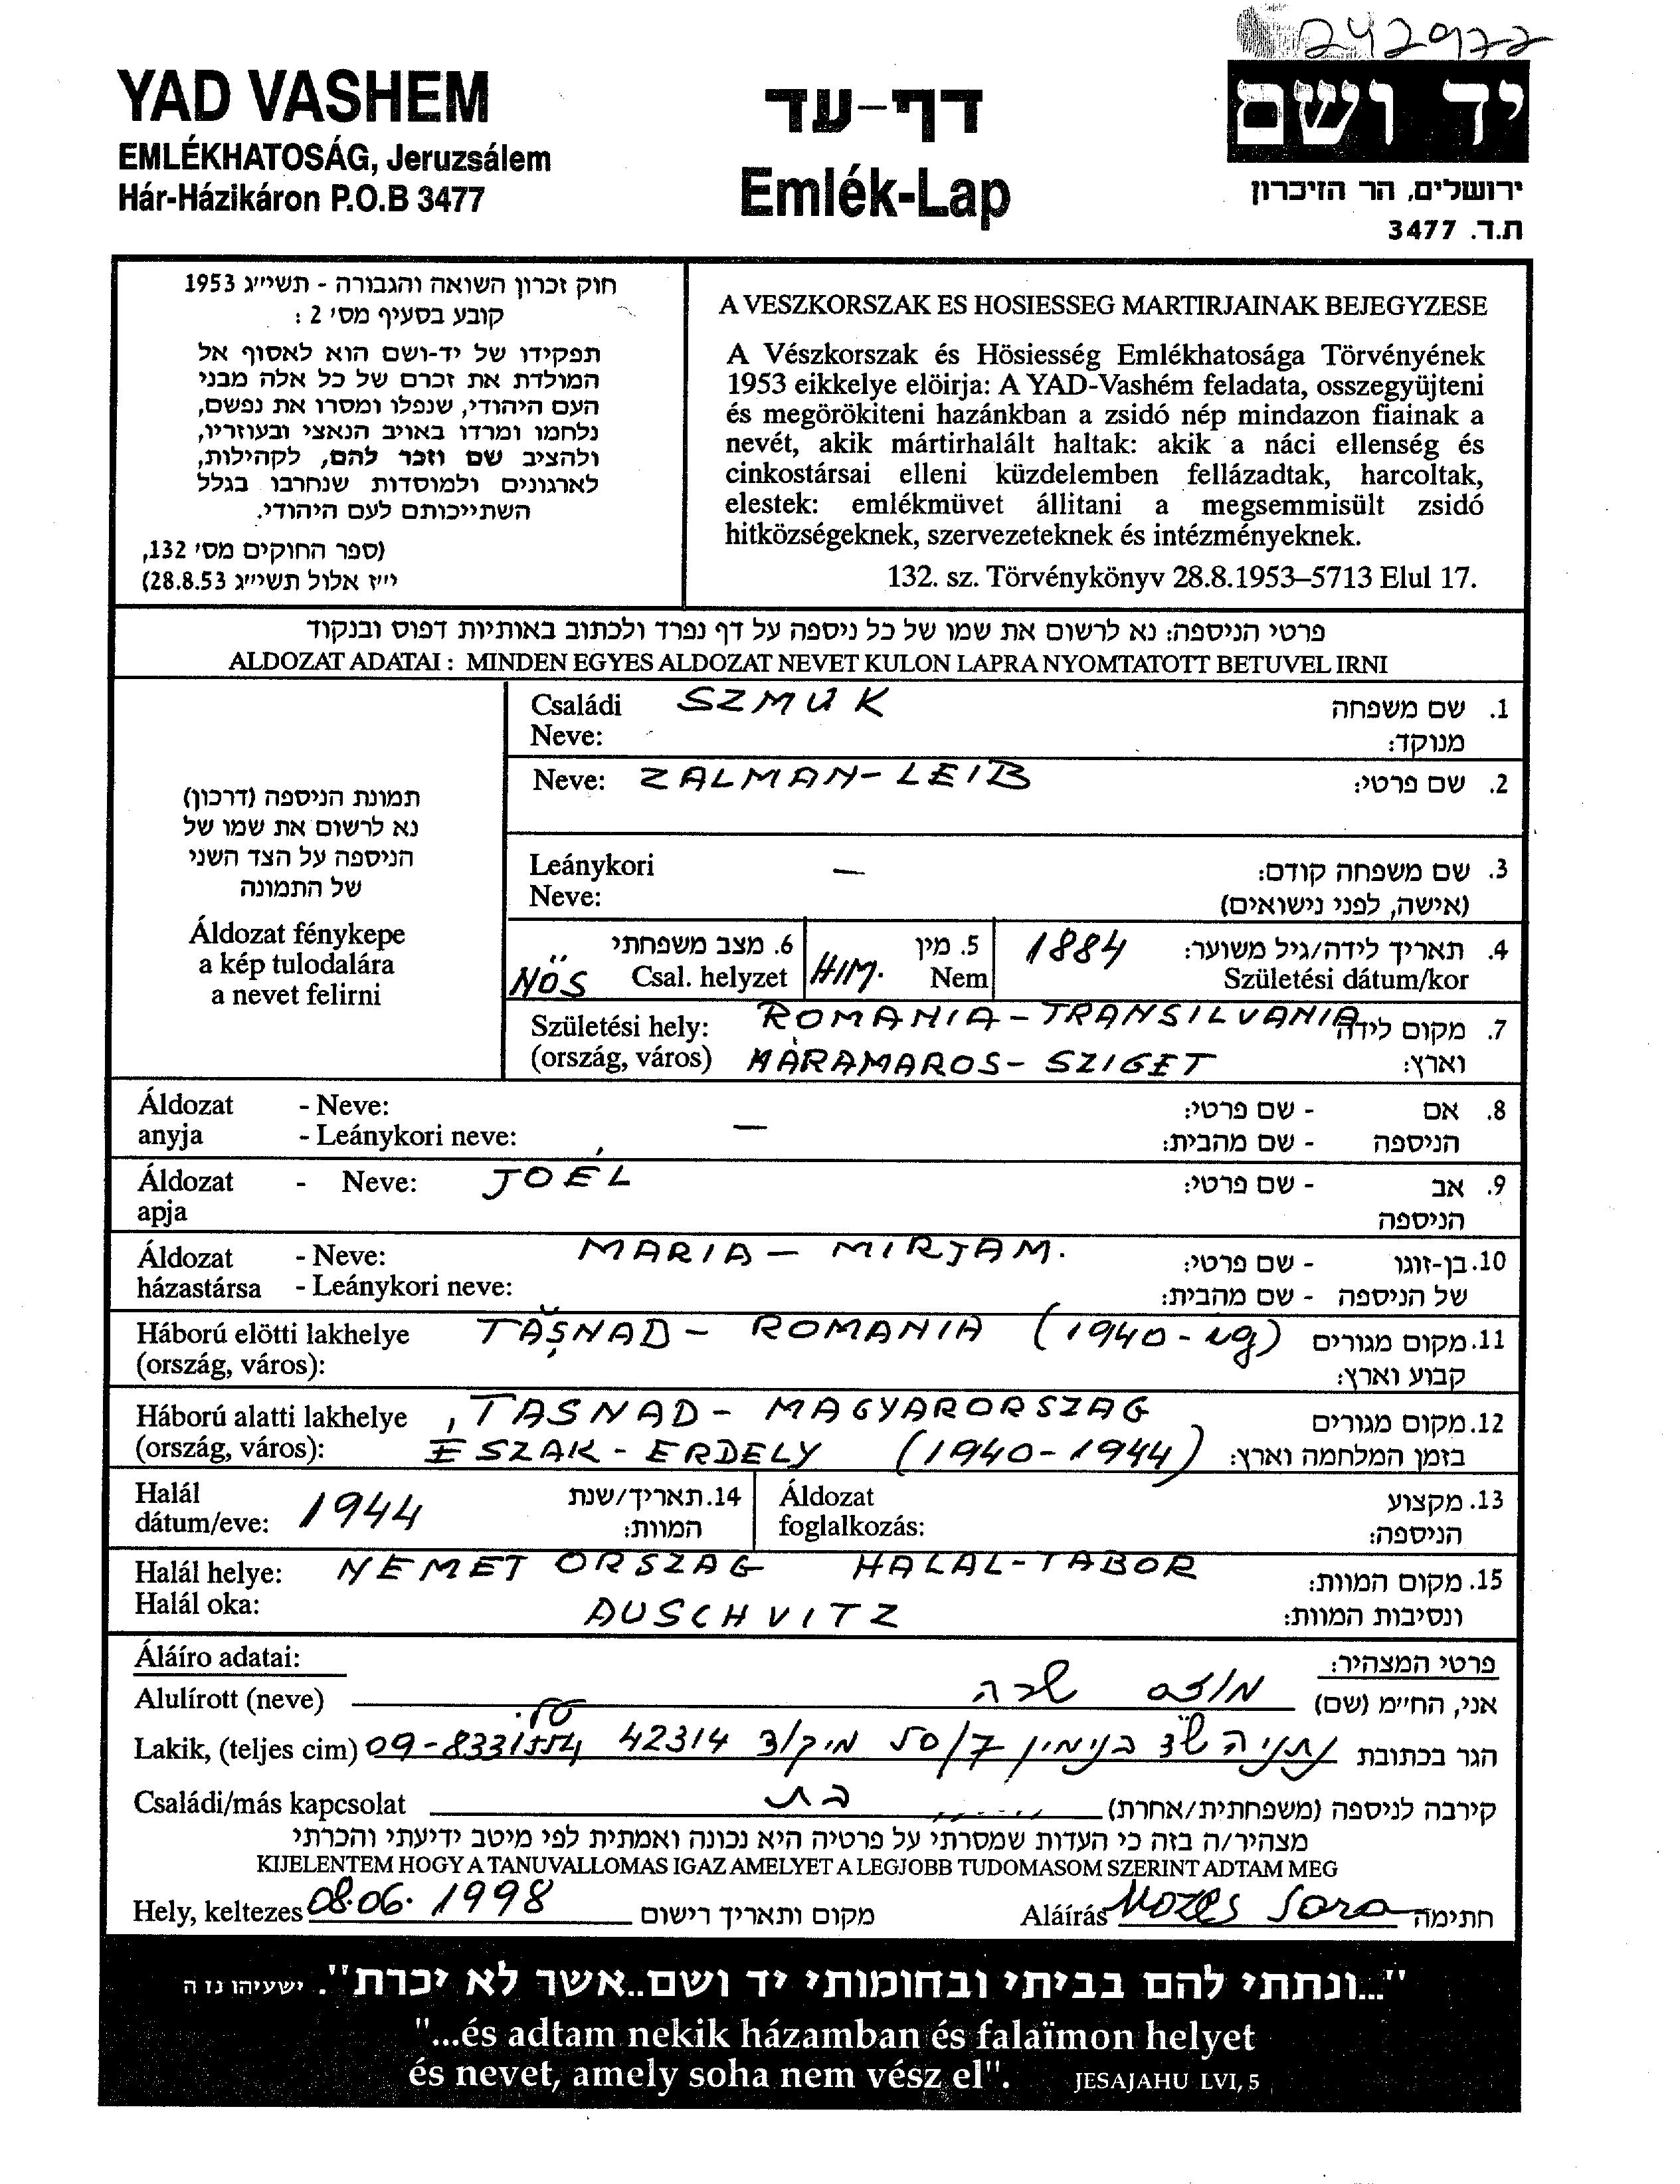 242977
YAD VASHEM
EMLÉKHATOSÁG, Jeruzsálem
Hár-Házikáron P.O.B 3477
דף-עד
Emlék-Lap
יד ושם
ירושלים, הר הזיכרון
ת.ד. 3477
חוק זכרון השואה והגבורה - תשי״ג 1953
קובע בסעיף מס׳ 2 :
תפקידו של יד-ושם הוא לאסוף אל
המולדת את זכרם של כל אלה מבני
העם היהודי, שנפלו ומסרו את נפשם,
נלחמו ומרדו באויב הנאצי ובעוזריו,
ולהציב שם וזכר להם, לקהילות,
לארגונים ולמוסדות שנחרבו בגלל
השתייכותם לעם היהודי.
(ספר החוקים מס׳ 132,
י״ז אלול תשי״ג 28.8.53)
A VESZKORSZAK ES HOSIESSEG MARTIRJAINAK BEJEGYZESE
A Vészkorszak és Hösiesség Emlékhatosága Törvényének
1953 eikkelye elöirja: A YAD-Vashém feladata, osszegyüjteni
és megörökiteni hazánkban a zsidó nép mindazon fiainak a
nevét, akik mártirhalált haltak: akik a náci ellenség és
cinkostársai elleni küzdelemben fellázadtak, harcoltak,
elestek: emlékmüvet állitani a megsemmisült zsidó
hitközségeknek, szervezeteknek és intézményeknek.
132. sz. Törvénykönyv 28.8.1953–5713 Elul 17.
פרטי הניספה: נא לרשום את שמו של כל ניספה על דף נפרד ולכתוב באותיות דפוס ובנקוד
ALDOZAT ADATAI : MINDEN EGYES ALDOZAT NEVET KULON LAPRA NYOMTATOTT BETUVEL IRNI
תמונת הניספה (דרכון)
נא לרשום את שמו של
הניספה על הצד השני
של התמונה
Áldozat fénykepe
a kép tulodalára
a nevet felirni
Családi SZMUK 1. שם משפחה
Neve: מנוקד:
Neve: ZALMAN-LEIB 2. שם פרטי:
Leánykori — 3. שם משפחה קודם:
Neve: (אישה, לפני נישואים)
NÖS 6. מצב משפחתי HIM. 5. מין 1884 4. תאריך לידה/גיל משוער:
Csal. helyzet Nem Születési dátum/kor
Születési hely: ROMANIA-TRANSILVANIA 7. מקום לידה
(ország, város) MÁRAMAROS-SZIGET וארץ:
Áldozat - Neve: - שם פרטי: 8. אם
anyja - Leánykori neve: — - שם מהבית: הניספה
Áldozat - Neve: JOÉL - שם פרטי: 9. אב
apja הניספה
Áldozat - Neve: MARIA - MIRJAM. - שם פרטי: 10. בן-זוגו
házastársa - Leánykori neve: - שם מהבית: של הניספה
Háború elötti lakhelye TĂŞNAD - ROMANIA (1940-ig) 11. מקום מגורים
(ország, város): קבוע וארץ:
Háború alatti lakhelye TASNAD- MAGYARORSZAG 12. מקום מגורים
(ország, város): ÉSZAK-ERDELY (1940-1944) בזמן המלחמה וארץ:
Halál 1944 14. תאריך/שנת Áldozat 13. מקצוע
dátum/eve: המוות: foglalkozás: הניספה:
Halál helye: NEMET ORSZAG HALAL-TABOR 15. מקום המוות:
Halál oka: AUSCHVITZ ונסיבות המוות:
Áláíro adatai: פרטי המצהיר:
Alulírott (neve) מוזס שרה אני, הח״מ (שם)
Lakik, (teljes cim) הגר בכתובת נתניה שד בנימין 7/50 מיקוד 42314 טל. 09-8331554
Családi/más kapcsolat בת קירבה לניספה (משפחתית/אחרת)
מצהיר/ה בזה כי העדות שמסרתי על פרטיה היא נכונה ואמתית לפי מיטב ידיעתי והכרתי
KIJELENTEM HOGY A TANUVALLOMAS IGAZ AMELYET A LEGJOBB TUDOMASOM SZERINT ADTAM MEG
Hely, keltezes 08.06. 1998 מקום ותאריך רישום Aláírás Mozes Sara חתימה
"...ונתתי להם בביתי ובחומותי יד ושם..אשר לא יכרת". ישעיהו נז ה
"...és adtam nekik házamban és falaïmon helyet
és nevet, amely soha nem vész el". JESAJAHU LVI, 5